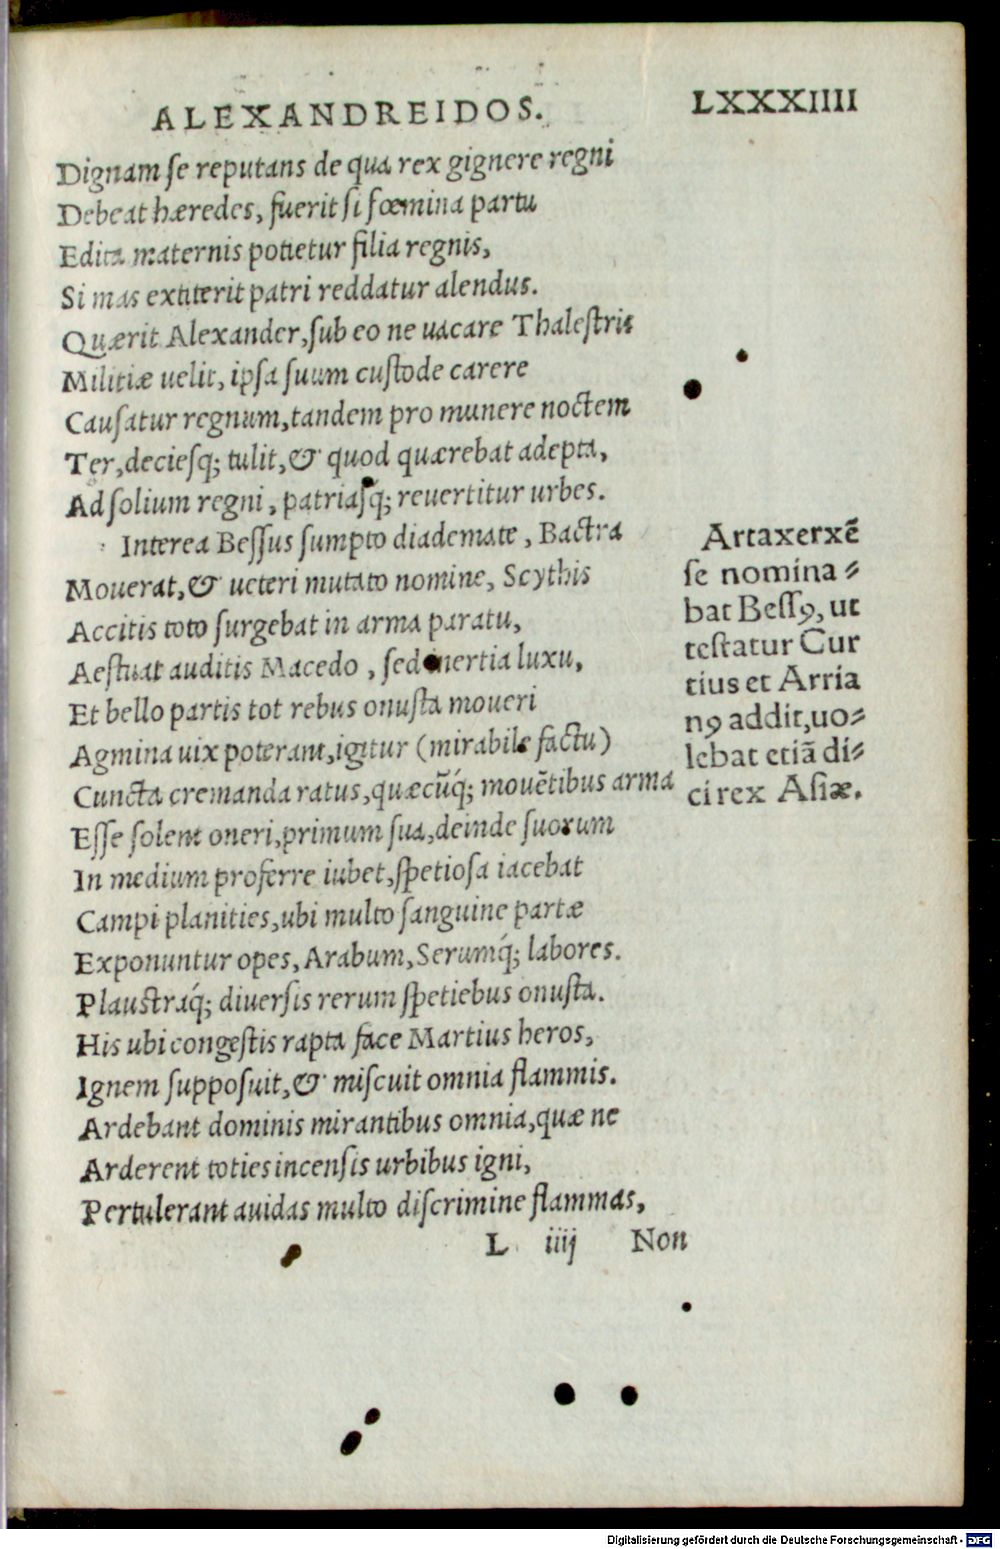 ALEXANDREIDOS.
LXXXIIII
Dignam se reputans de qua rex gignere regni
Debeat hæredes, fuerit si fœmina partu
Edita maternis potietur filia regnis,
Si mas extiterit patri reddatur alendus.
Quærit Alexander, sub eo ne uacare Thalestris
Militiæ uelit, ipsa suum custode carere
Causatur regnum, tandem pro munere noctem
Ter, deciesq; tulit, & quod quærebat adepta,
Ad solium regni, patriasq́; reuertitur urbes.
Interea Bessus sumpto diademate, Bactra
Mouerat, & ueteri mutato nomine, Scythis
Accitis toto surgebat in arma paratu,
Aestuat auditis Macedo, sed inertia luxu,
Et bello partis tot rebus onusta moueri
Agmina uix poterant, igitur (mirabile factu)
Cuncta cremanda ratus, quæcũq́; mouẽtibus arma
Esse solent oneri, primum sua, deinde suorum
In medium proferre iubet, spetiosa iacebat
Campi planities, ubi multo sanguine partæ
Exponuntur opes, Arabum, Serumq́; labores.
Plaustraq́; diuersis rerum spetiebus onusta.
His ubi congestis rapta face Martius heros,
Ignem supposuit, & miscuit omnia flammis.
Ardebant dominis mirantibus omnia, quæ ne
Arderent toties incensis urbibus igni,
Pertulerant auidas multo discrimine flammas,
L iiij Non
Artaxerxẽ
se nomina⸗
bat Bessꝯ, ut
testatur Cur
tius et Arria
nꝯ addit, uo⸗
lebat etiã di⸗
ci rex Asiæ.
Digitalisierung gefördert durch die Deutsche Forschungsgemeinschaft - DFG